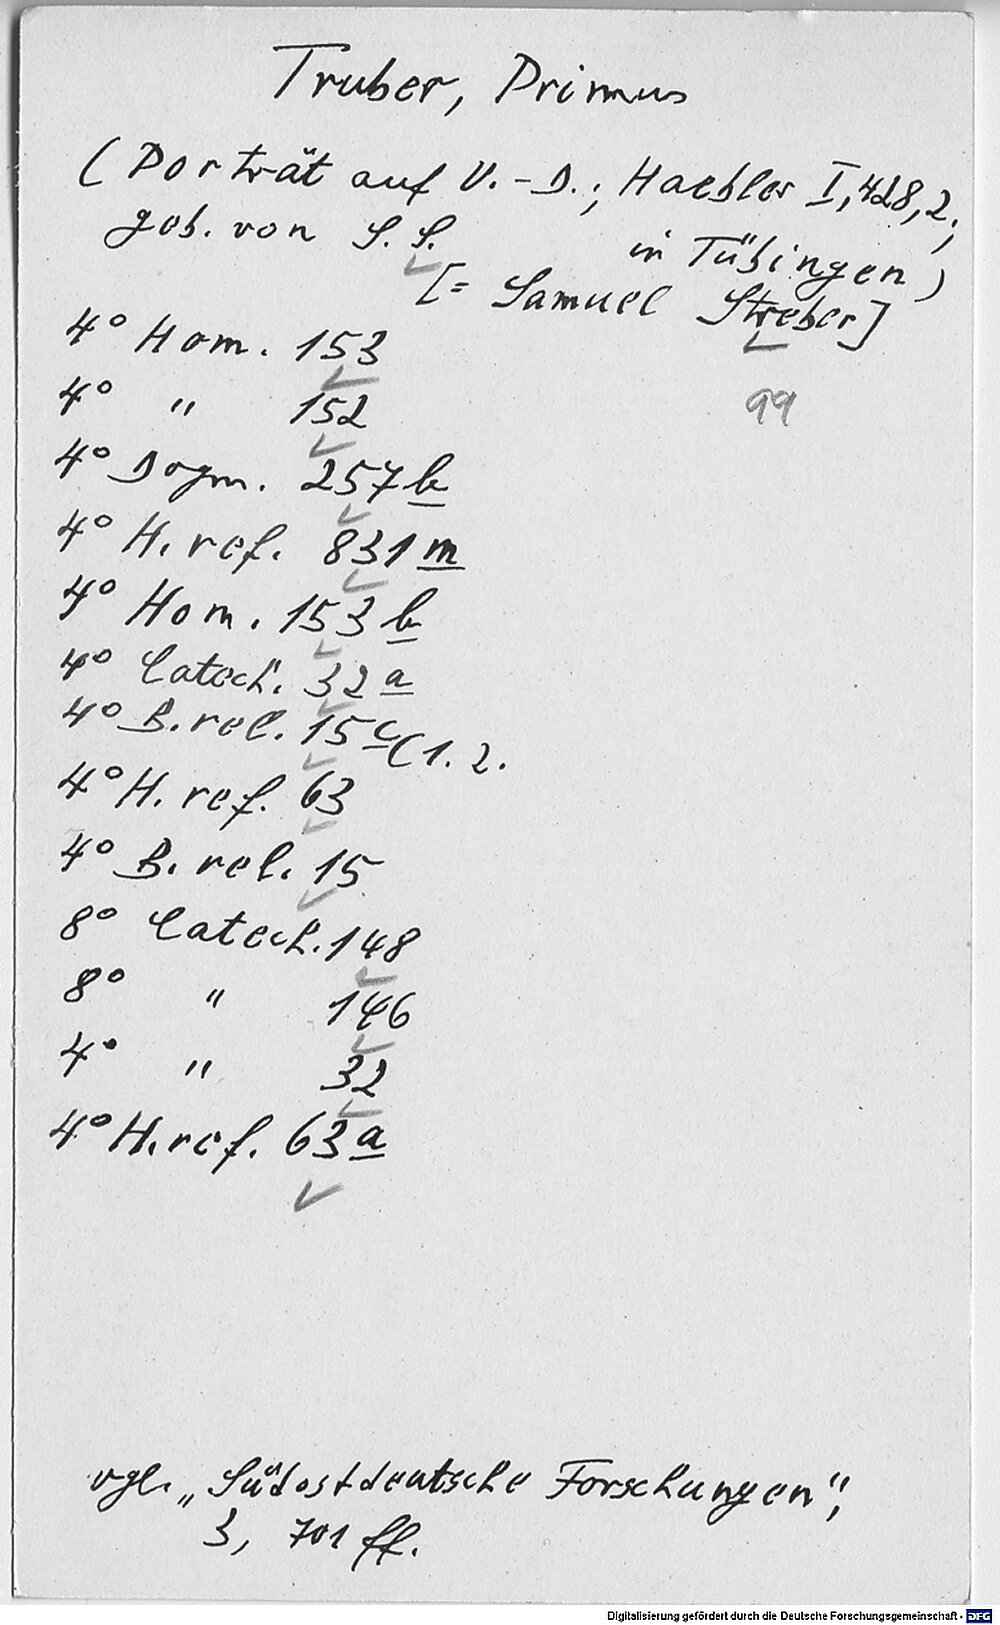 Truber, Primus
(Porträt auf V.-D.; Haebler I, 428,2;
geb. von S. S. in Tübingen)
[= Samuel Streber]
4° Hom. 153
99
4° " 152
4° Dogm. 257 b
4° H. ref. 831 m
4° Hom. 153 b
4° Catech. 32 a
4° B. rel. 15 c (1. 2.
4° H. ref. 63
4° B. rel. 15
8° Catech. 148
8° " 146
4° " 32
4° H. ref. 63 a
vgl. „Südostdeutsche Forschungen",
3, 701 ff.
Digitalisierung gefördert durch die Deutsche Forschungsgemeinschaft - DFG